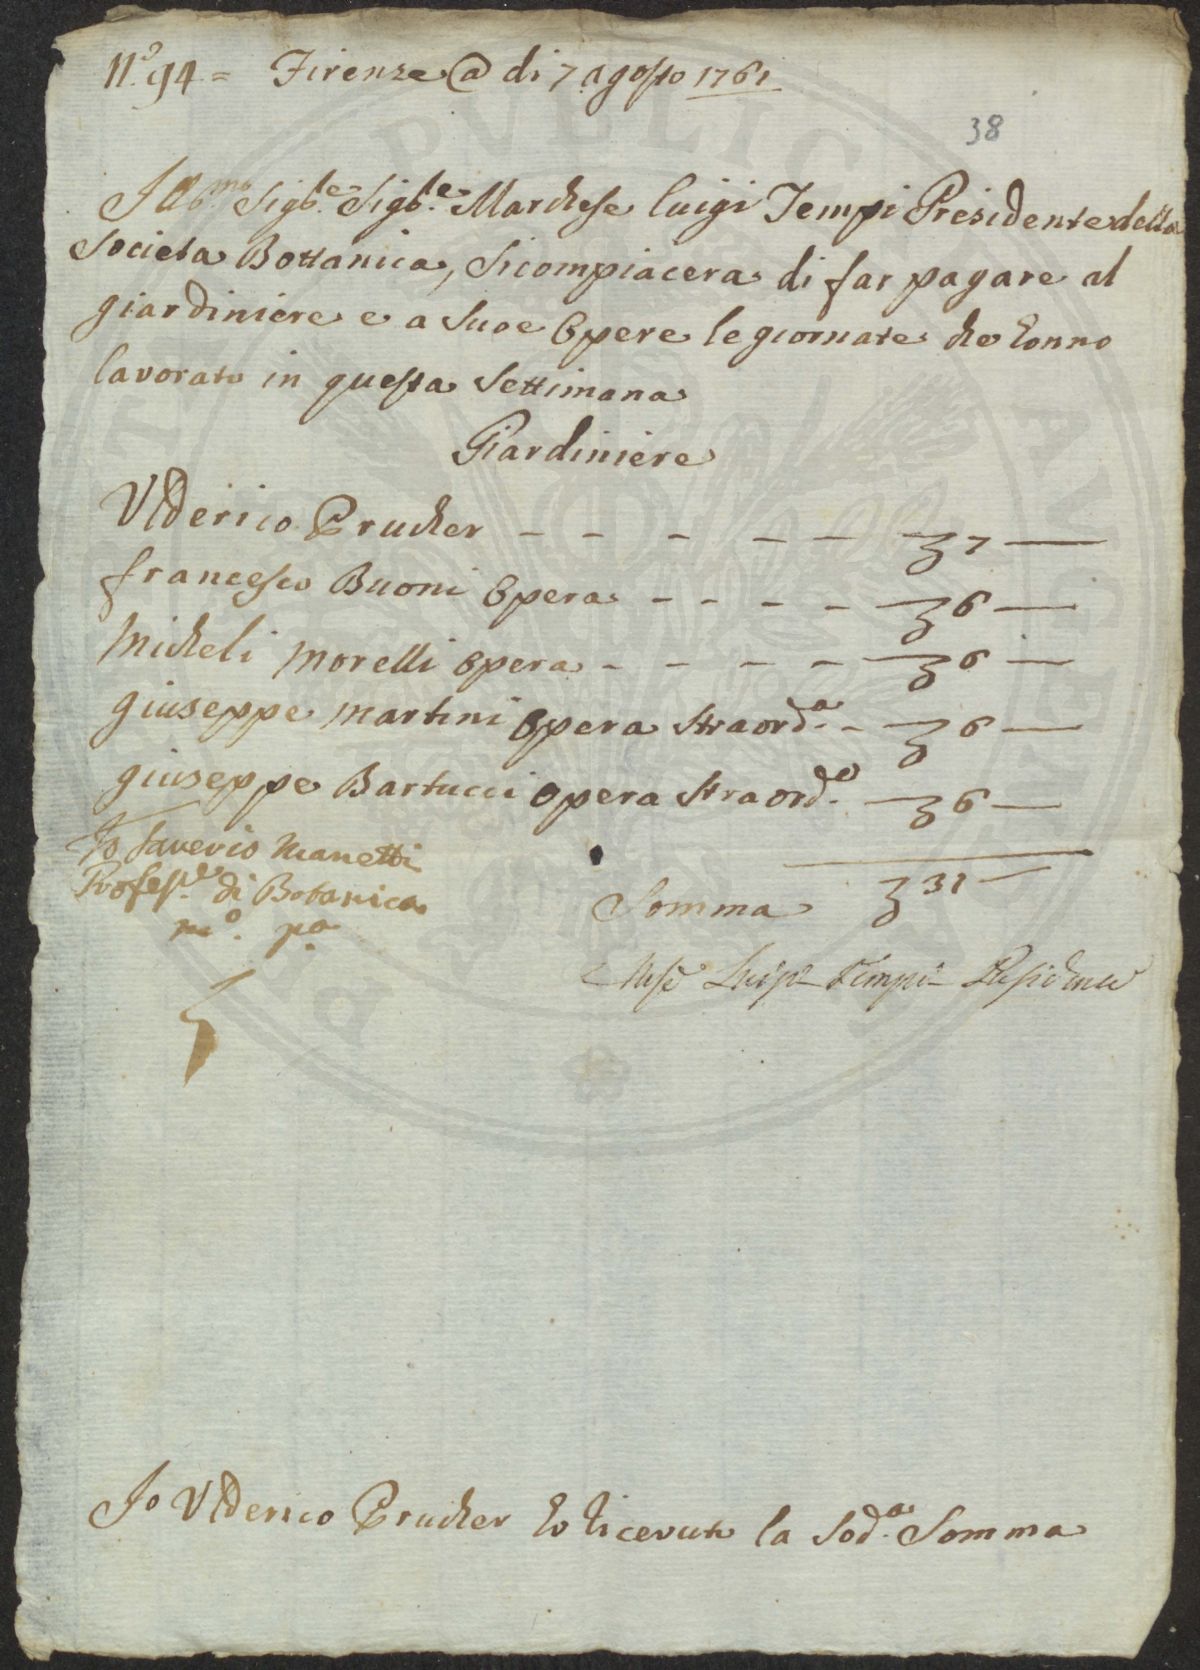 N.º 94 = Firenze @ di 7 agosto 1761
38
Ill.mo Sig.re Sig.re Marchese luigi Tempi Presidente della
Societa Bottanica, Sicompiacera di far pagare al
giardiniere e a Suoe Opere le giornate che honno
lavorato in questa Settimana
Giardiniere
Ulderico Prucher - - - - - 7 —
francesco Buoni Opera - - - - 6 —
Micheli Morelli Opera - - - - 6 —
giuseppe Martini Opera Straord.a - 6 —
giuseppe Bartucci Opera Straord.a 6 —
Io Saverio Manetti
Profess.re di Botanica
m.o p.a
Somma 31 —
Luigi Tempi Presidente
Io Ulderico Prucher ho ricevuto la Sod.a Somma